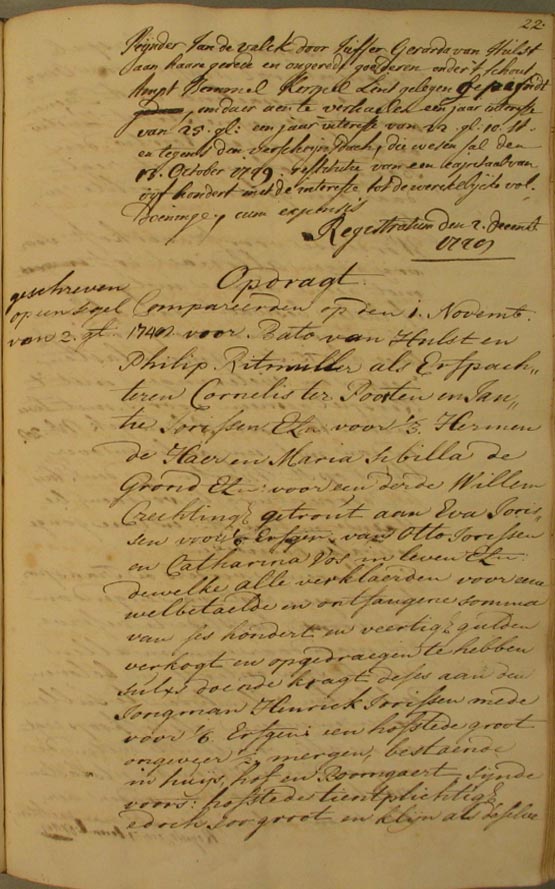 22.
Reijnder Jan de valck door Juffer Gerarda van Hulst
aan haare gerede en ongerede goederen onder 't schout
Ampt Hemmel Kerspel Lent gelegen gepeindt
om daer aen te verhaelen een jaar interesse
van 25. gl: een jaar interesse van 12. gl. 10. st.
en tegens den verschijnsdach, die wesen sal den
October 1749, restitutie van een Capitaal van
vijf hondert met de interesse tot de werckelijcke vol-
doeninge, cum expensis
Registratum den 2. Decemb.
1749
geschreven
op een segel
van 2. gl.
Opdragt
Compareerden op den 1. Novemb.
1749 voor Bato van Hulst en
Philip Ritmuller als Erfpach„
teren Cornelis ter Pooten en Jan„
tie Jorissen Eln voor 1/3. Hermen
de Haer en Maria Sibilla de
Grond Eln: voor een derde Willem
Crechting getrout aan Eva Joris„
sen voor 1/6 Erfgen. van Otto Jorissen
en Catharina Vos in leven Eln:
dewelke alle verklaerden voor eene
welbetaelde en ontfangene somma
van ses hondert en veertig gulden
verkogt en opgedraegen te hebben
sulx doende kragt deses aan den
Jongman Henrick Jorissen mede
voor 1/6 Erfgen: een hofstede groot
ongeveer mergen, bestaende
in huijs, hof en Boomgaert sijnde
voors: hofstede tientplichtig
edoch soo groot en klijn als deselve